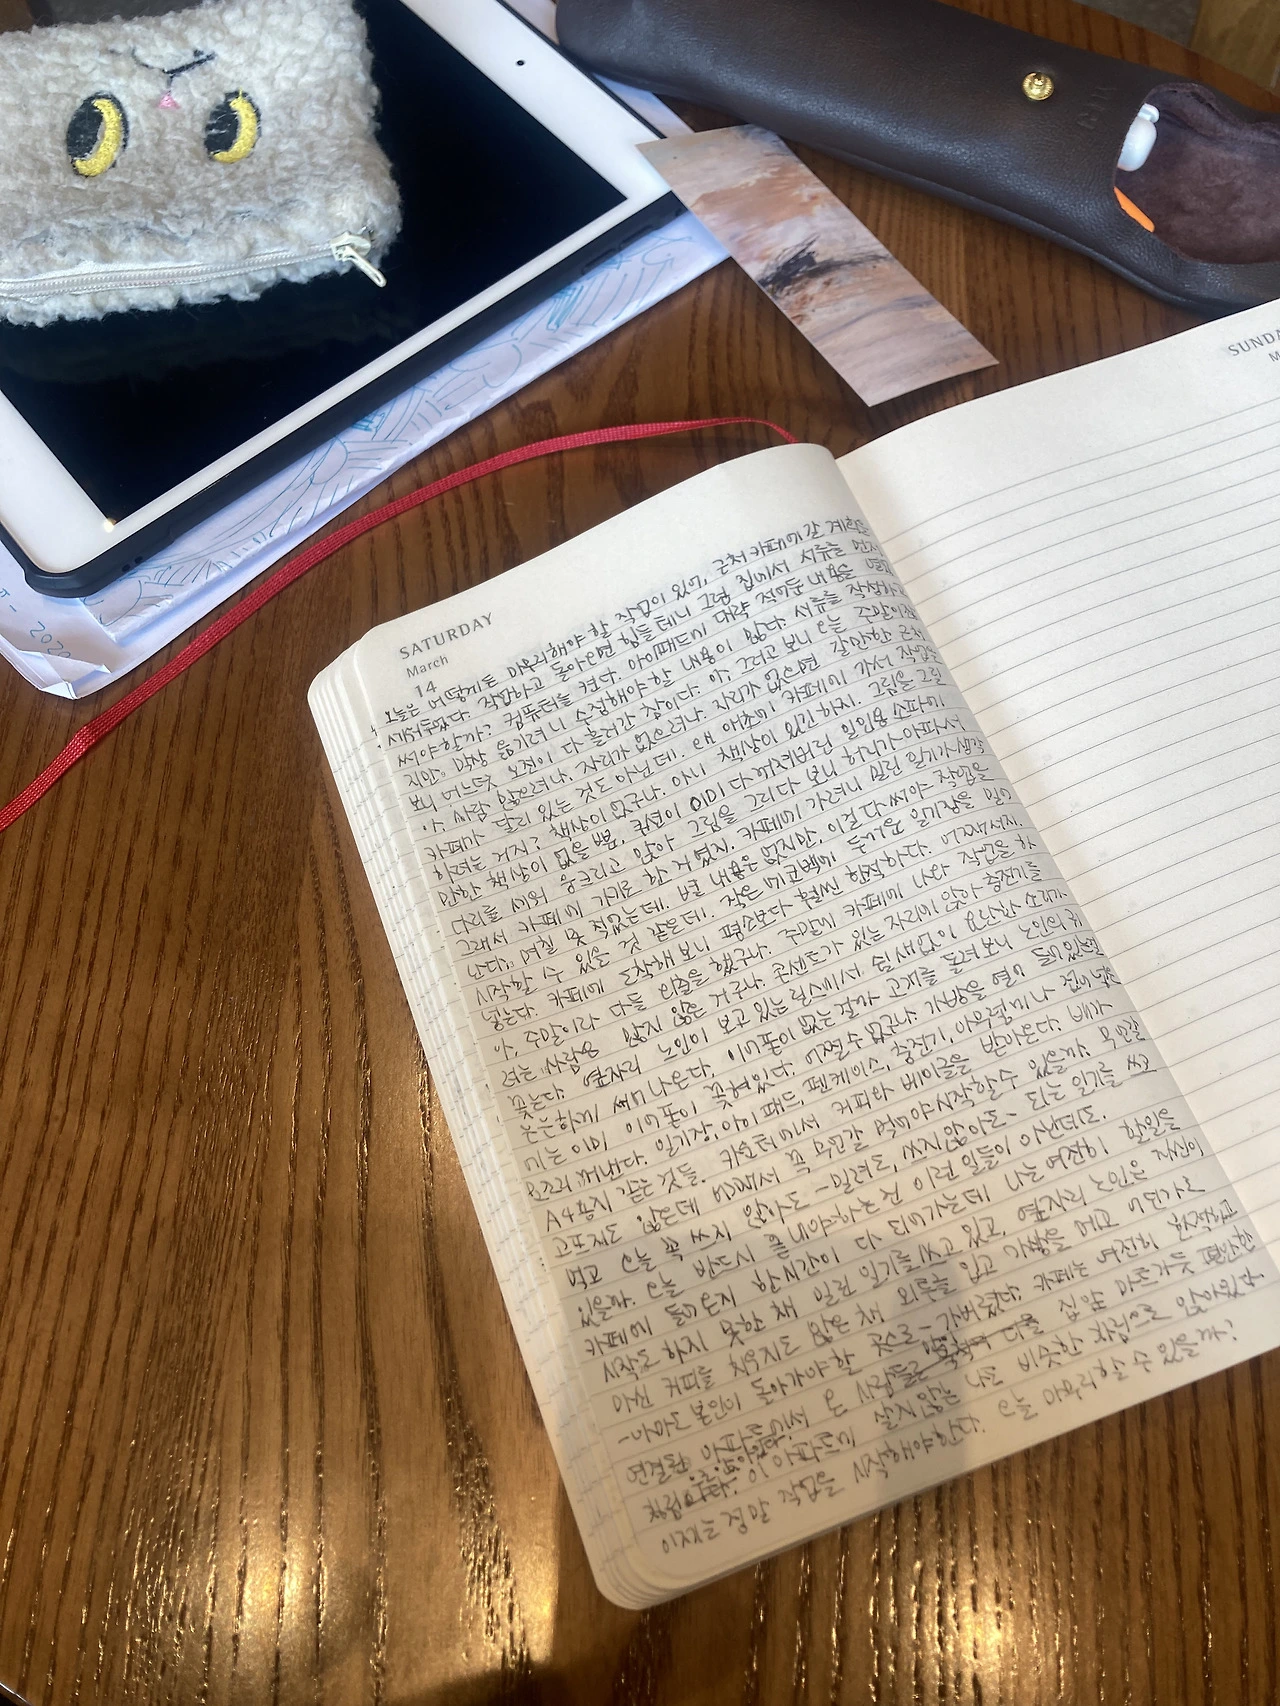 SATURDAY
March
14
SUNDA
M
202
오늘은 어떻게든 마무리해야 할 작업이 있어, 근처 카페에 갈 계획을
세워두었다. 작업하고 돌아오면 힘들테니 그럼 집에서 서류를 먼저
써야 할까? 컴퓨터를 켠다. 아이패드에 대략 적어둔 내용을
지만. 막상 옮기려니 수정해야 할 내용이 많다. 서류를 작성하다
보니 어느덧 오전이 다 흘러간 참이다. 아, 그러고 보니 오늘 주말이잖
아. 사람 많으려나. 자리가 없으려나. 자리가 없으면 갈만한 근처
카페가 달리 있는 것도 아닌데. 왜 애초에 카페에 가서 작업을
하려는 거지? 책상이 없구나. 아니 책상이 있긴 하지. 그림을 그릴
만한 책상이 없을 뿐. 쿠션이 이미 다 꺼져버린 일인용 소파에
다리를 세워 웅크리고 앉아 그림을 그리다 보니 허리가 아파서
그래서 카페에 가기로 한 거였지. 카페에 가려니 밀린 일기가 생각
난다. 며칠 못 적었는데. 별 내용은 없지만, 이걸 다 써야 작업을
시작할 수 있을 것 같은데. 작은 에코백에 두꺼운 일기장을 밀어
넣는다. 카페에 도착해 보니 평소보다 훨씬 한적하다. 어째서지.
아, 주말이라 다들 외출을 했구나. 주말에 카페에 나와 작업을 하
려는 사람은 많지 않은 거구나. 콘센트가 있는 자리에 앉아 충전기를
꽂는다. 옆자리 노인이 보고 있는 릴스에서 쉴새없이 요란한 소리가
흘러나온다. 이어폰이 없는 걸까 고개를 돌려보니 노인의 귀
에는 이미 이어폰이 꽂혀있다. 어쩔 수 없구나. 가방을 열어 들어있던
요소를 꺼낸다. 일기장, 아이패드, 펜케이스, 충전기, 아무렇게나 접어 넣은
A4용지 같은 것들. 카운터에서 커피와 베이글을 받아온다. 배가
고프지도 않은데 어째서 꼭 무언갈 먹어야 시작할 수 있을까. 무언갈
먹고 오늘 꼭 쓰지 않아도 - 밀려도, 쓰지않아도 - 되는 일기를 쓰고
있을까. 오늘 반드시 끝내야하는 건 이런 일들이 아닌데도.
카페에 들어온지 한시간이 다 되어가는데 나는 여전히 할일을
시작도 하지 못한 채 밀린 일기를 쓰고 있고, 옆자리 노인은 자신이
마신 커피를 치우지도 않은 채 외투를 입고 가방을 메고 어딘가로
- 아마도 본인이 돌아가야 할 곳으로 - 가버렸다. 카페는 여전히 한적하고
연결된 아파트에서 온 사람들은 다들 집앞 마트가듯 편안한
차림이다. 이 아파트에 살지않는 나도 비슷한 차림으로 앉아있다.
이제는 정말 작업을 시작해야한다. 오늘 마무리할 수 있을까?